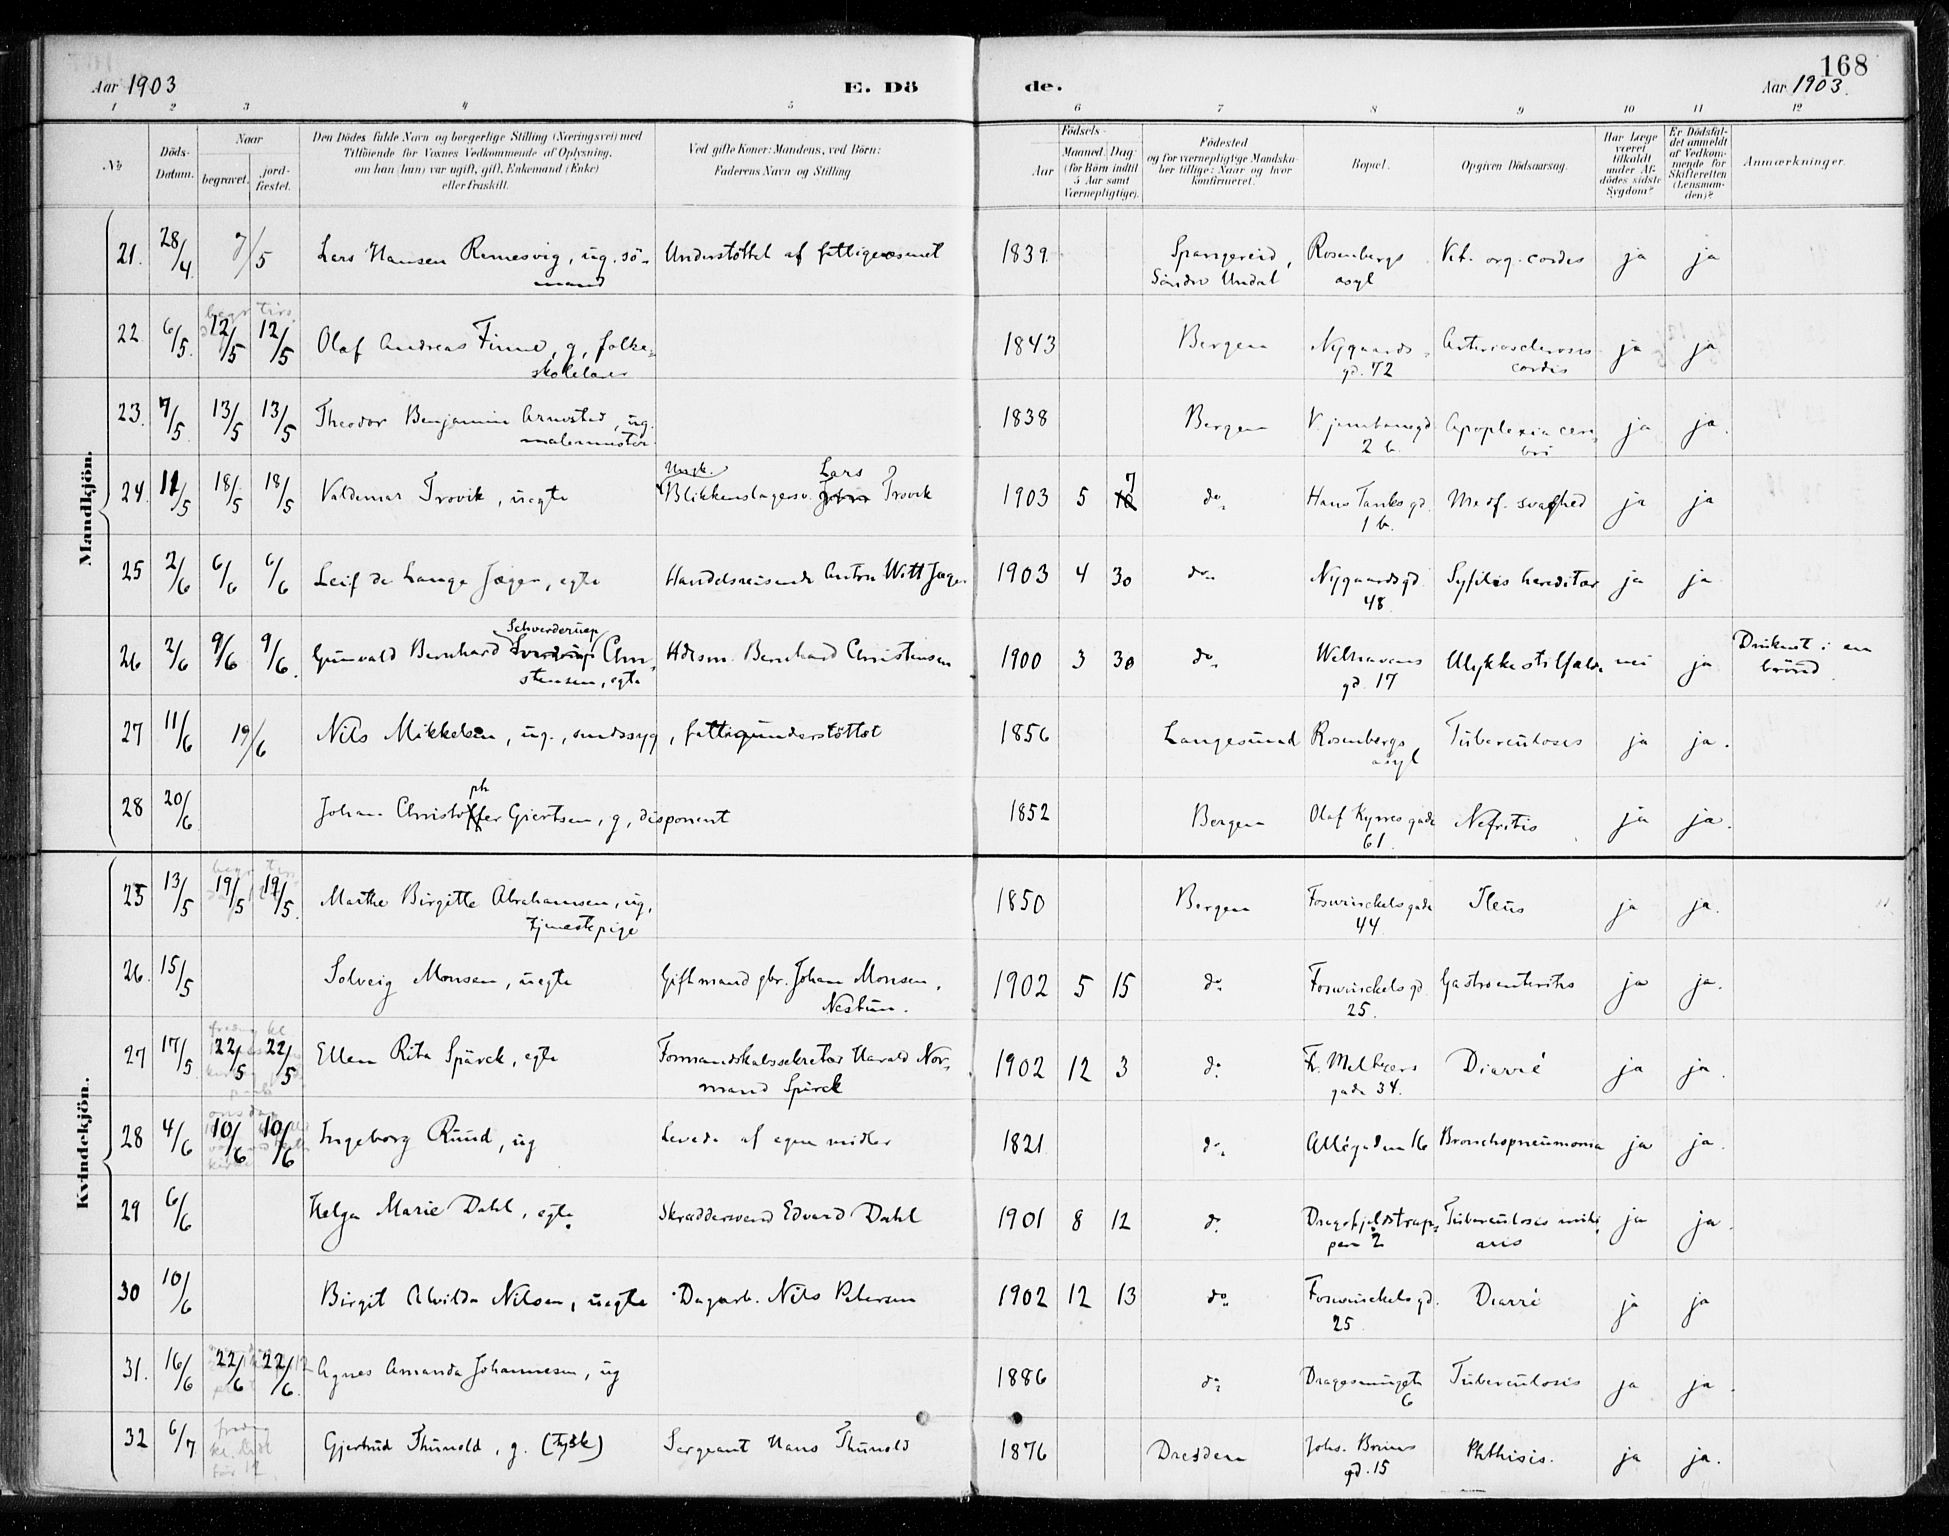 168
Aar 1903 E. Dö de. Aar 1903.
1 2 3 4 5 6 7 8 9 10 11 12
№ Döds-Datum. Naar begravet. jordfæstet. Den Dödes fulde Navn og borgerlige Stilling (Næringsvei) med Tilföiende for Voxnes Vedkommende af Oplysning, om han (hun) var ugift, gift, Enkemand (Enke) eller fraskilt. Ved gifte Koner: Mandens, ved Börn: Faderens Navn og Stilling Födsels- Aar Maaned. Dag. (for Börn indtil 5 Aar samt Værnepligtige). Födested og for værnepligtige Mandskaber tillige: Naar og hvor konfirmeret. Bopæl. Opgiven Dödsaarsag. Har Læge været tilkaldt under Afdödes sidste Sygdom? Er Dödsfaldet anmeldt af Vedkommende for Skifteretten (Lensmanden)? Anmærkninger.
Mandkjön.
21. 28/4 7/5 Lars Hansen Remesvig, ug. sömand Understöttet af fattigvæsenet 1839. Spangereid, Söndre Undal Rosenbergs asyl Vit. org. cordis ja ja
22 6/5. 12/5 12/5 Olaf Andreas Finne, g, folkeskolelærer 1843 Bergen Nygaardsgd. 72 Arteriosclerosis cordis ja ja
23. 7/5 13/5 13/5 Theodor Benjamin Arnestad, ug. malermester 1838 Bergen V. jernbanegd 2 b. Apoplexia cerebri ja ja.
24. 12/5 18/5 18/5 Valdemar Trovik, uegte Ungk. Blikkenslagersv. Lars Trovik 1903 5 7 do. Hans Tanks gd. 1 b. Medf. svaghed ja ja
25 2/6 6/6 6/6 Leif de Lange Jæger, egte Handelsreisende Anton Witt Jæger 1903 4 30 do. Nygaardsgd. 48 Syfilis hereditær ja ja
26 2/6 9/6 9/6. Gunvald Bernhard Schverderuup Christensen, egte Hdlsm. Bernhard Christensen 1900 3 30 do. Welhavens gd. 17 Ulykkestilfælde nei ja Druknet i en brönd.
27 11/6 19/6 Nils Mikkelsen, ug., sindssyg, fattigunderstöttet 1856 Langesund Rosenbergs asyl Tuberculosis ja ja.
28 20/6 Johan Christopher Giertsen, g, disponent 1852 Bergen Olaf Kyrres gade 61 Nefritis ja ja.
Kvindekjön.
25 13/5 19/5 19/5. Marthe Birgitte Abrahamsen, ug, tjenestepige 1850 Bergen Foswinckels gade 44 Ileus ja ja.
26. 15/5 Solveig Monsen, uegte Gift mand gbr. Johan Monsen, Nestun. 1902 5 15 do. Foswinckels gd. 25. Gastroenteritis ja ja.
27 17/5 22/5 22/5 Ellen Rita Spärck, egte Formandskabssekretær Harald Normand Spärck 1902 12 3 do. Fr. Meltzers gade 34. Diarré ja ja.
28 4/6 10/6 10/6 Ingeborg Ruud, ug Levede af egne midler 1821 do. Allégaden 16 Bronchopneumonia ja ja.
29 6/6 Helga Marie Dahl, egte. Skræddersvend Edvard Dahl 1901 8 12 do. Dragefjeldstrappen 2 Tuberculosis miliaris ja ja.
30 10/6 Birgit Alvilda Nilsen, uegte Dagarb. Nils Petersen 1902 12 13 do. Foswinckels gd. 25 Diarré ja ja
31. 16/6 22/6 22/6. Agnes Amanda Johannesen, ug 1886 do. Dragesmuget 6 Tuberculosis ja ja.
32 6/7 Gjertrud Thunold, g. (tysk) Sergeant Hans Thunold 1876 Dresden Johs. Bruns gd. 15 Phthisis. ja ja.